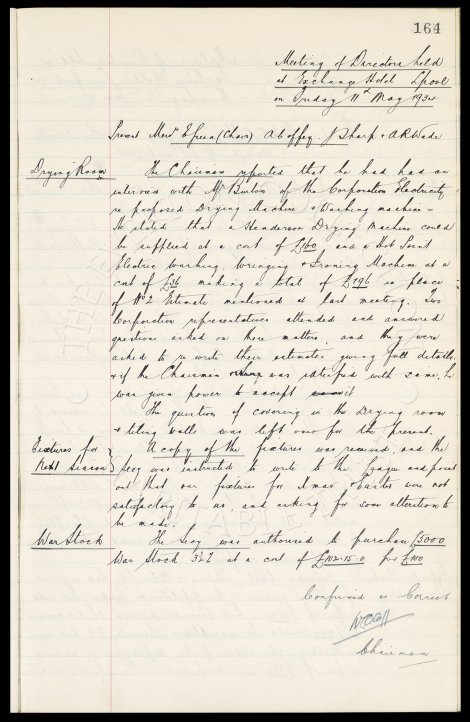 164
Meeting of Directors held
at Exchange Hotel Lpool
on Friday 11th May 1934
Present Messrs E Green (Chair) A Coffey. J Sharp & A R Wade
Drying Room
The Chairman reported that he had had an
interview with Mr Burton of the Corporation Electricity
re proposed Drying Machine & Washing machine -
He stated that a Henderson Drying Machine could
be supplied at a cost of £160, and a Hot Point
Electric Washing, Wringing & Ironing Machine at a
cost of £36 making a total of £196 in place
of No 2 Estimate mentioned at last meeting. Two
Corporation representatives attended and answered
questions asked on those matters, and they were
asked to re write their estimates giving full details.
& if the Chairman was satisfied with same, he
was given power to accept it
The question of covering in the Drying room
& tiling walls was left over for the present.
Fixtures for
Next Season
A copy of the fixtures was received, and the
Secy was instructed to write to the League and point
out that our fixtures for Xmas & Easter were not
satisfactory to us, and asking for some alteration to
be made.
War Stock
The Secy was authorised to purchase £3000
War Stock 3½% at a cost of £102-15-0 per £100
Confirmed as Correct
Chairman